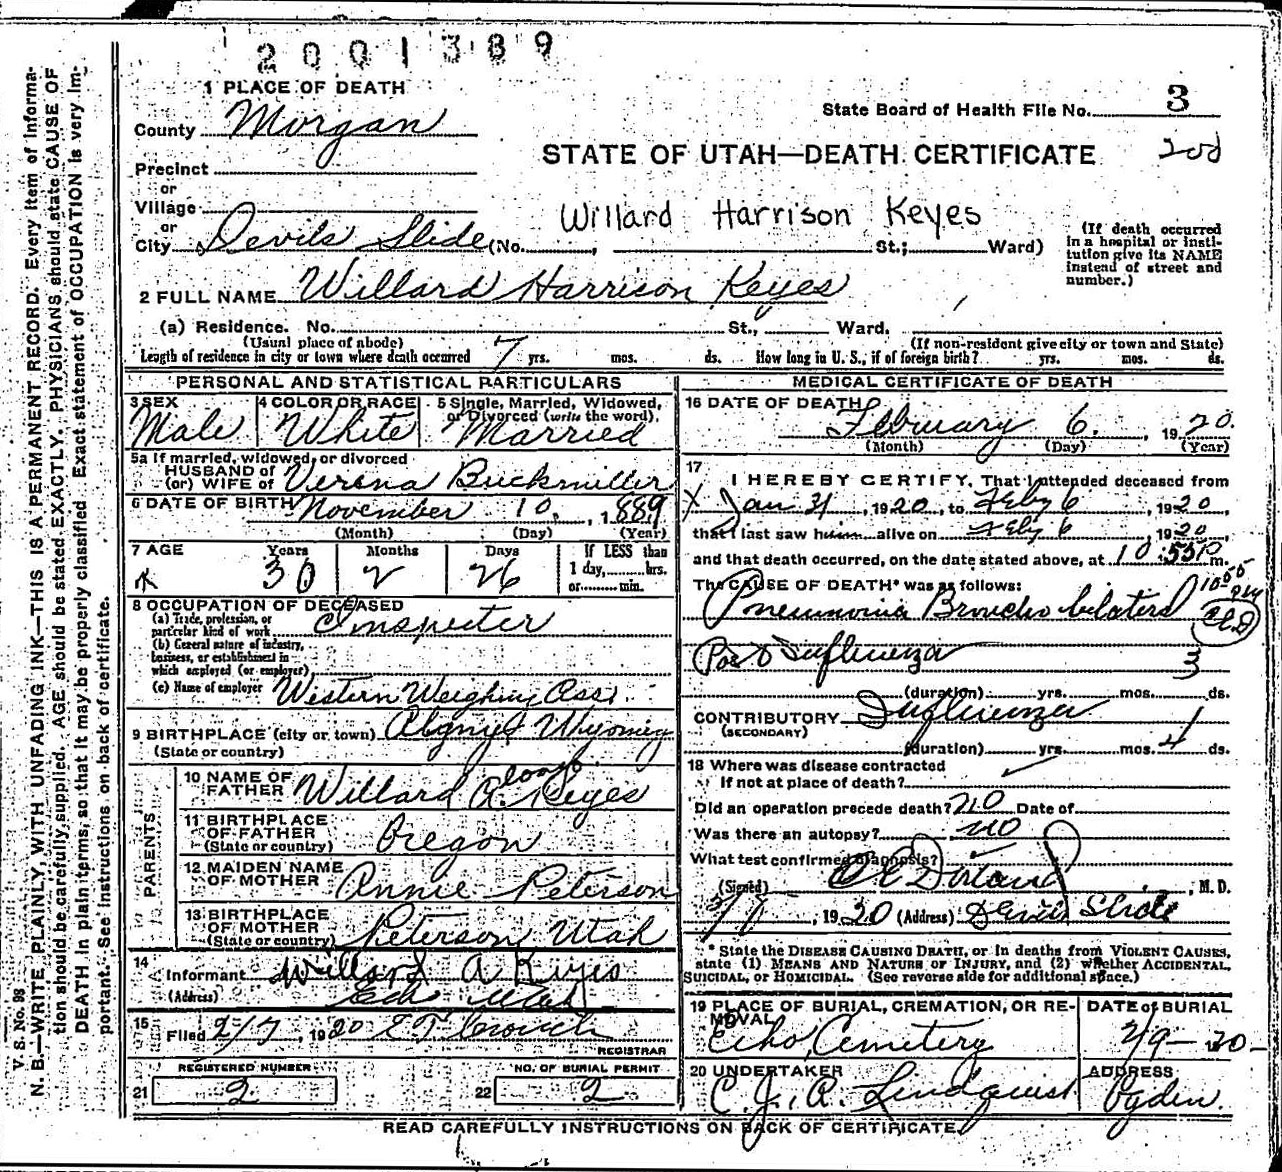 2001389
1 PLACE OF DEATH
State Board of Health File No. 3
County Morgan
STATE OF UTAH—DEATH CERTIFICATE
200
Precinct
or
Village
or
City Devils Slide (No. , St.; Ward)
Willard Harrison Keyes
(If death occurred
in a hospital or insti-
tution give its NAME
instead of street and
number.)
2 FULL NAME Willard Harrison Keyes
(a) Residence. No. St., Ward.
(Usual place of abode)
(If non-resident give city or town and State)
Length of residence in city or town where death occurred 7 yrs. mos. ds. How long in U. S., if of foreign birth? yrs. mos. ds.
PERSONAL AND STATISTICAL PARTICULARS
3 SEX
Male
4 COLOR OR RACE
White
5 Single, Married, Widowed,
or Divorced (write the word).
Married
5a If married, widowed, or divorced
HUSBAND of
(or) WIFE of Verena Buckmiller
6 DATE OF BIRTH November 10, 1889
(Month) (Day) (Year)
7 AGE
Years Months Days
30 2 26
If LESS than
1 day, hrs.
or min.
8 OCCUPATION OF DECEASED
(a) Trade, profession, or
particular kind of work Inspecter
(b) General nature of industry,
business, or establishment in
which employed (or employer)
(c) Name of employer Western Weighing Ass.
9 BIRTHPLACE (city or town) Wyoming
(State or country)
PARENTS
10 NAME OF
FATHER Willard A. Keyes
11 BIRTHPLACE
OF FATHER
(State or country) Oregon
12 MAIDEN NAME
OF MOTHER Annie Peterson
13 BIRTHPLACE
OF MOTHER
(State or country) Peterson Utah
14
Informant Willard A Keyes
(Address) Echo Utah
15
Filed 2/7, 1920 E T Crouch
REGISTRAR
REGISTERED NUMBER
21 2
NO. OF BURIAL PERMIT
22 2
MEDICAL CERTIFICATE OF DEATH
16 DATE OF DEATH
February 6. , 1920.
(Month) (Day) (Year)
17
I HEREBY CERTIFY, That I attended deceased from
X Jan 31, 1920, to Feby 6, 1920,
that I last saw him alive on Feby 6, 1920,
and that death occurred, on the date stated above, at 10:55P m.
The CAUSE OF DEATH* was as follows:
Pneumonia Broncho bilateral
Post Influenza
(duration) yrs. mos. 3 ds.
CONTRIBUTORY Influenza
(SECONDARY)
(duration) yrs. mos. 4 ds.
18 Where was disease contracted
If not at place of death?
Did an operation precede death? no Date of
Was there an autopsy? no
What test confirmed diagnosis?
(Signed) , M. D.
2/7, 1920 (Address) Devils Slide
* State the DISEASE CAUSING DEATH, or in deaths from VIOLENT CAUSES,
state (1) MEANS AND NATURE OF INJURY, and (2) whether ACCIDENTAL,
SUICIDAL, or HOMICIDAL. (See reverse side for additional space.)
19 PLACE OF BURIAL, CREMATION, OR RE-
MOVAL
Echo Cemetery
DATE of BURIAL
2/9-20-
20 UNDERTAKER
C. J. A. Lindquist
ADDRESS
Ogden.
READ CAREFULLY INSTRUCTIONS ON BACK OF CERTIFICATE.
V. S. No. 98
N. B.—WRITE PLAINLY, WITH UNFADING INK—THIS IS A PERMANENT RECORD. Every item of informa-
tion should be carefully supplied. AGE should be stated EXACTLY. PHYSICIANS should state CAUSE OF
DEATH in plain terms, so that it may be properly classified. Exact statement of OCCUPATION is very im-
portant. See instructions on back of certificate.